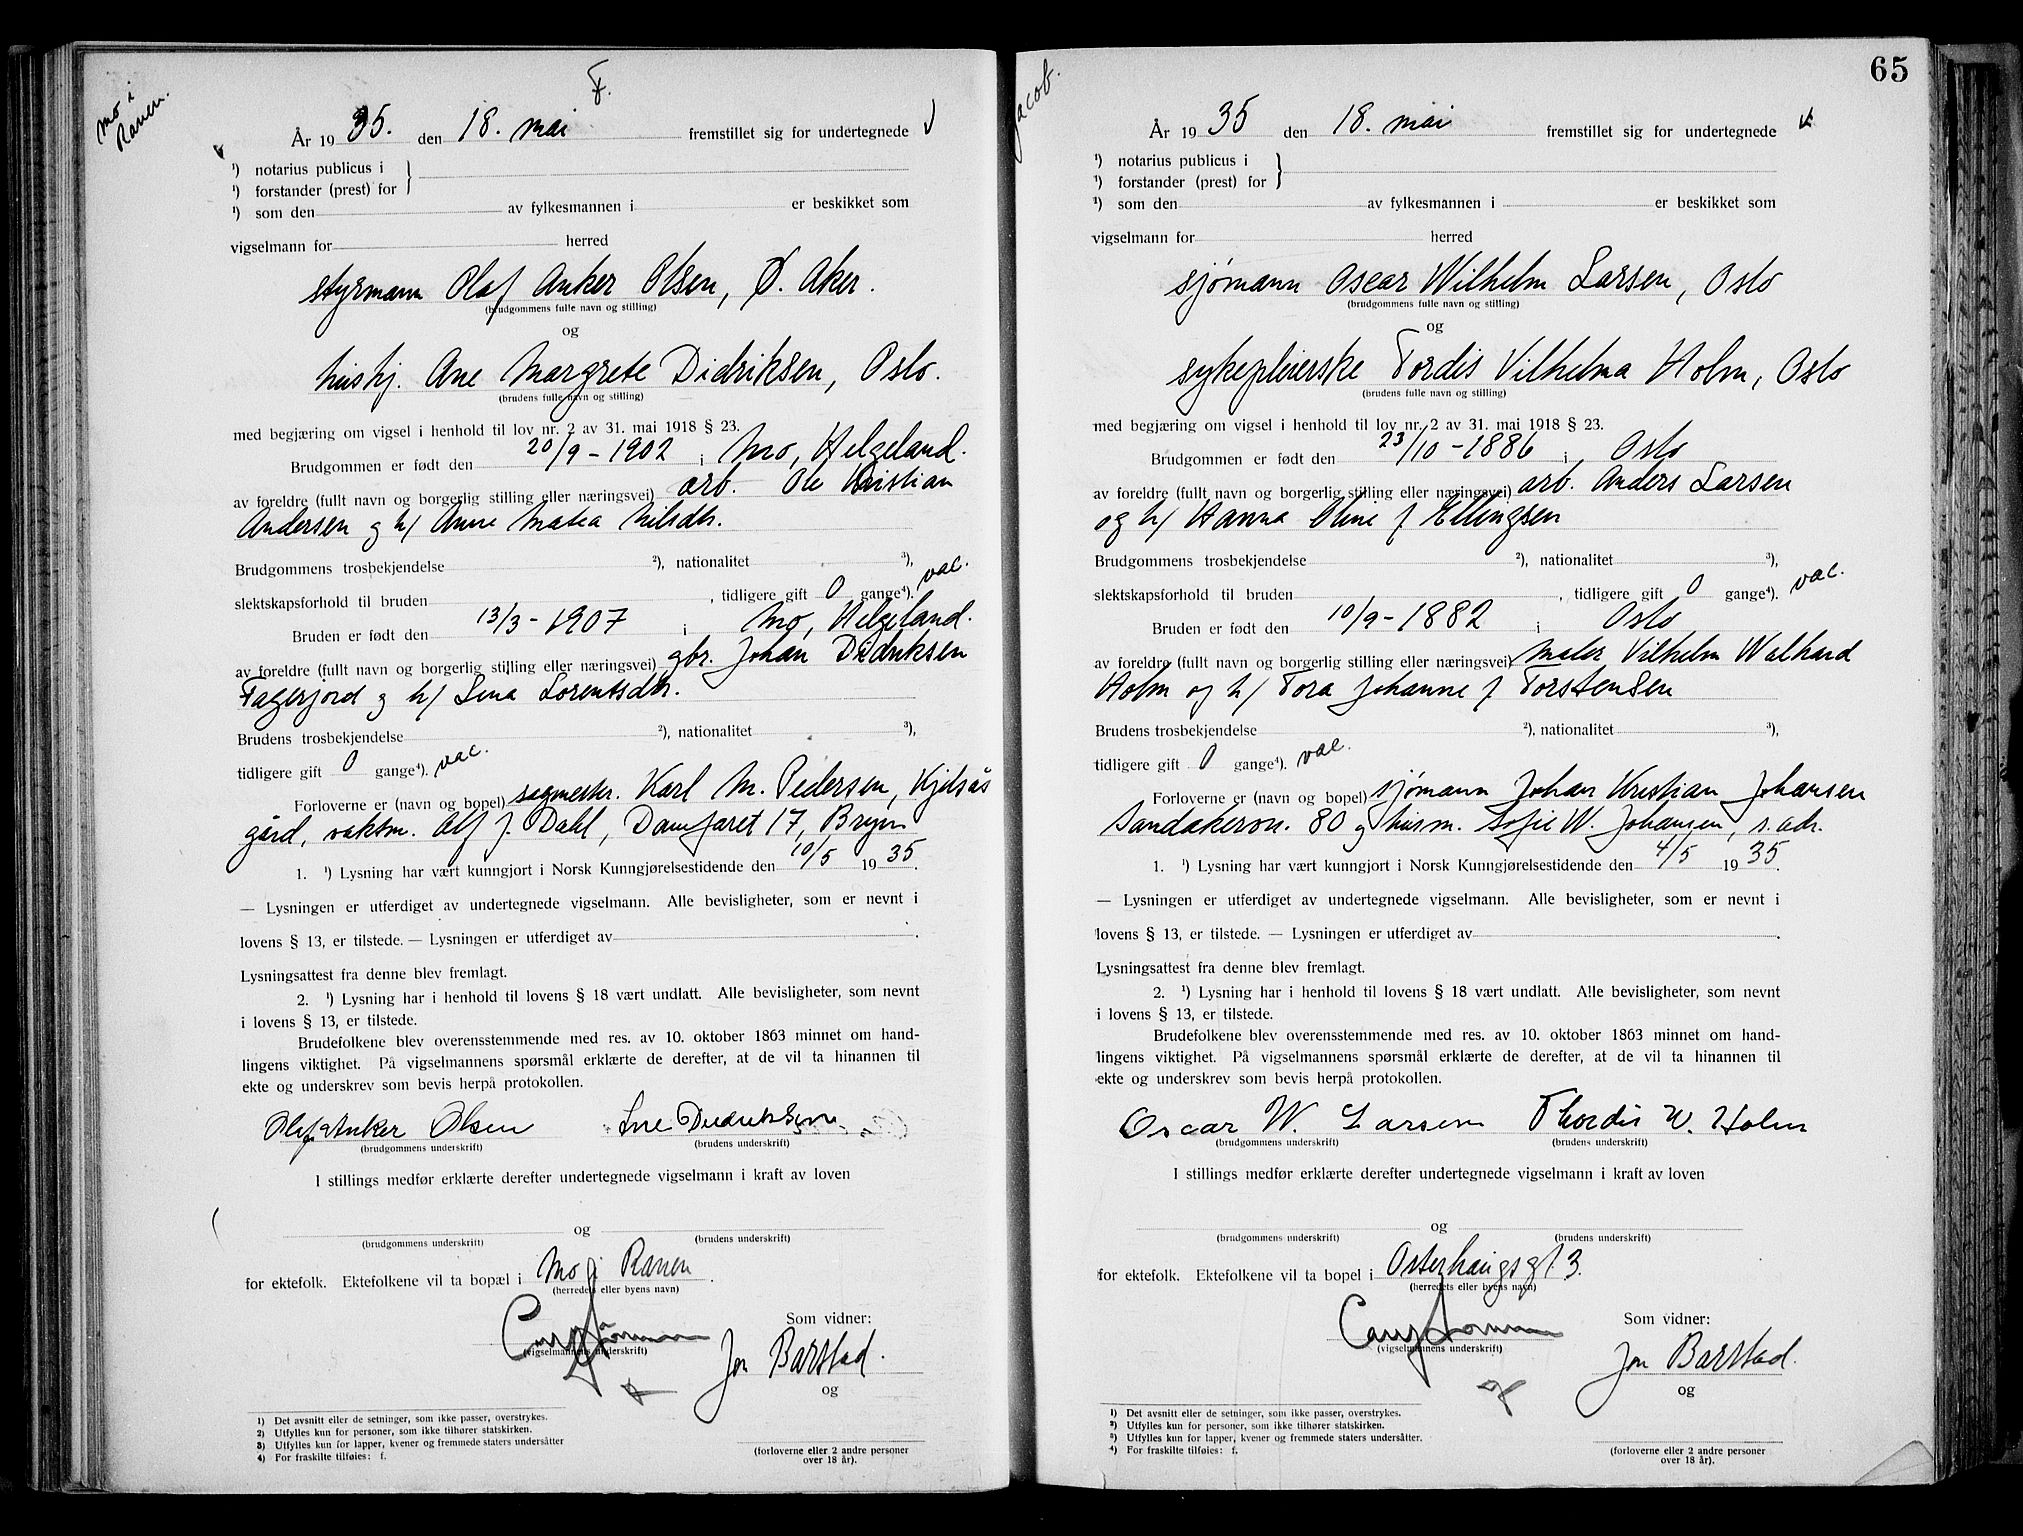 mo i
Ranen.
F.
År 1935. den 18. mai fremstillet sig for undertegnede
¹) notarius publicus i
¹) forstander (prest) for
¹) som den av fylkesmannen i er beskikket som
vigselmann for herred
styrmann Olaf Anker Olsen, Ø. Aker.
(brudgommens fulle navn og stilling)
og
hushj. Ane Margrete Didriksen, Oslo.
(brudens fulle navn og stilling)
med begjæring om vigsel i henhold til lov nr. 2 av 31. mai 1918 § 23.
Brudgommen er født den 20/9 - 1902 i Mo, Helgeland.
av foreldre (fullt navn og borgerlig stilling eller næringsvei) arb. Ole Kristian
Andersen og h/ Anne Matea Nilsdtr.
Brudgommens trosbekjendelse ²), nationalitet ³),
slektskapsforhold til bruden , tidligere gift 0 gange⁴). vac.
Bruden er født den 13/3 - 1907 i Mo, Helgeland.
av foreldre (fullt navn og borgerlig stilling eller næringsvei) gbr. Johan Didriksen
Fagerjord og h/ Lina Lorentsdtr.
Brudens trosbekjendelse ²), nationalitet ³),
tidligere gift 0 gange⁴). vac.
Forloverne er (navn og bopel) sagmester. Karl M. Pedersen, Kjelsås
gård, vaktm. Alf J. Dahl, Damfaret 17, Bryn
1. ¹) Lysning har vært kunngjort i Norsk Kunngjørelsestidende den 10/5 1935.
— Lysningen er utferdiget av undertegnede vigselmann. Alle bevisligheter, som er nevnt i
lovens § 13, er tilstede. — Lysningen er utferdiget av .
Lysningsattest fra denne blev fremlagt.
2. ¹) Lysning har i henhold til lovens § 18 vært undlatt. Alle bevisligheter, som nevnt
i lovens § 13, er tilstede.
Brudefolkene blev overensstemmende med res. av 10. oktober 1863 minnet om hand-
lingens viktighet. På vigselmannens spørsmål erklærte de derefter, at de vil ta hinannen til
ekte og underskrev som bevis herpå protokollen.
Olaf Anker Olsen Ane Didriksen
(brudgommens underskrift) (brudens underskrift)
I stillings medfør erklærte derefter undertegnede vigselmann i kraft av loven
og
(brudgommens underskrift) (brudens underskrift)
for ektefolk. Ektefolkene vil ta bopæl i Mo i Ranen .
(herredets eller byens navn)
Som vidner:
(vigselmannens underskrift)
Jon Barstad.
og
1) Det avsnitt eller de setninger, som ikke passer, overstrykes.
2) Utfylles kun for personer, som ikke tilhører statskirken.
3) Utfylles kun for lapper, kvener og fremmede staters undersåtter
4) For fraskilte tilføies: f.
(forloverne eller 2 andre personer
over 18 år).
65
Jacob.
År 1935 den 18. mai fremstillet sig for undertegnede
¹) notarius publicus i
¹) forstander (prest) for
¹) som den av fylkesmannen i er beskikket som
vigselmann for herred
sjømann Oscar Wilhelm Larsen, Oslo
(brudgommens fulle navn og stilling)
og
sykepleierske Tordis Vilhelma Holm, Oslo
(brudens fulle navn og stilling)
med begjæring om vigsel i henhold til lov nr. 2 av 31. mai 1918 § 23.
Brudgommen er født den 23/10 - 1886 i Oslo
av foreldre (fullt navn og borgerlig stilling eller næringsvei) arb. Anders Larsen
og h/ Hanna Oline f Ellingsen
Brudgommens trosbekjendelse ²), nationalitet ³),
slektskapsforhold til bruden , tidligere gift 0 gange⁴). vac.
Bruden er født den 10/9 - 1882 i Oslo
av foreldre (fullt navn og borgerlig stilling eller næringsvei) maler Vilhelm Walhard
Holm og h/ Tora Johanne f Torstensen
Brudens trosbekjendelse ²), nationalitet ³),
tidligere gift 0 gange⁴). vac.
Forloverne er (navn og bopel) sjømann Johan Kristian Johansen
Sandakervn. 80 og husm. Sofie W. Johansen, s. adr.
1. ¹) Lysning har vært kunngjort i Norsk Kunngjørelsestidende den 4/5 1935.
— Lysningen er utferdiget av undertegnede vigselmann. Alle bevisligheter, som er nevnt i
lovens § 13, er tilstede. — Lysningen er utferdiget av .
Lysningsattest fra denne blev fremlagt.
2. ¹) Lysning har i henhold til lovens § 18 vært undlatt. Alle bevisligheter, som nevnt
i lovens § 13, er tilstede.
Brudefolkene blev overensstemmende med res. av 10. oktober 1863 minnet om hand-
lingens viktighet. På vigselmannens spørsmål erklærte de derefter, at de vil ta hinannen til
ekte og underskrev som bevis herpå protokollen.
Oscar W. Larsen Thordis W. Holm
(brudgommens underskrift) (brudens underskrift)
I stillings medfør erklærte derefter undertegnede vigselmann i kraft av loven
og
(brudgommens underskrift) (brudens underskrift)
for ektefolk. Ektefolkene vil ta bopel i Osterhausgt. 3.
(herredets eller byens navn)
Som vidner:
(vigselmannens underskrift)
Jon Barstad.
og
1) Det avsnitt eller de setninger, som ikke passer, overstrykes.
2) Utfylles kun for personer, som ikke tilhører statskirken.
3) Utfylles kun for lapper, kvener og fremmede staters undersåtter.
4) For fraskilte tilføies: f.
(forloverne eller 2 andre personer
over 18 år).